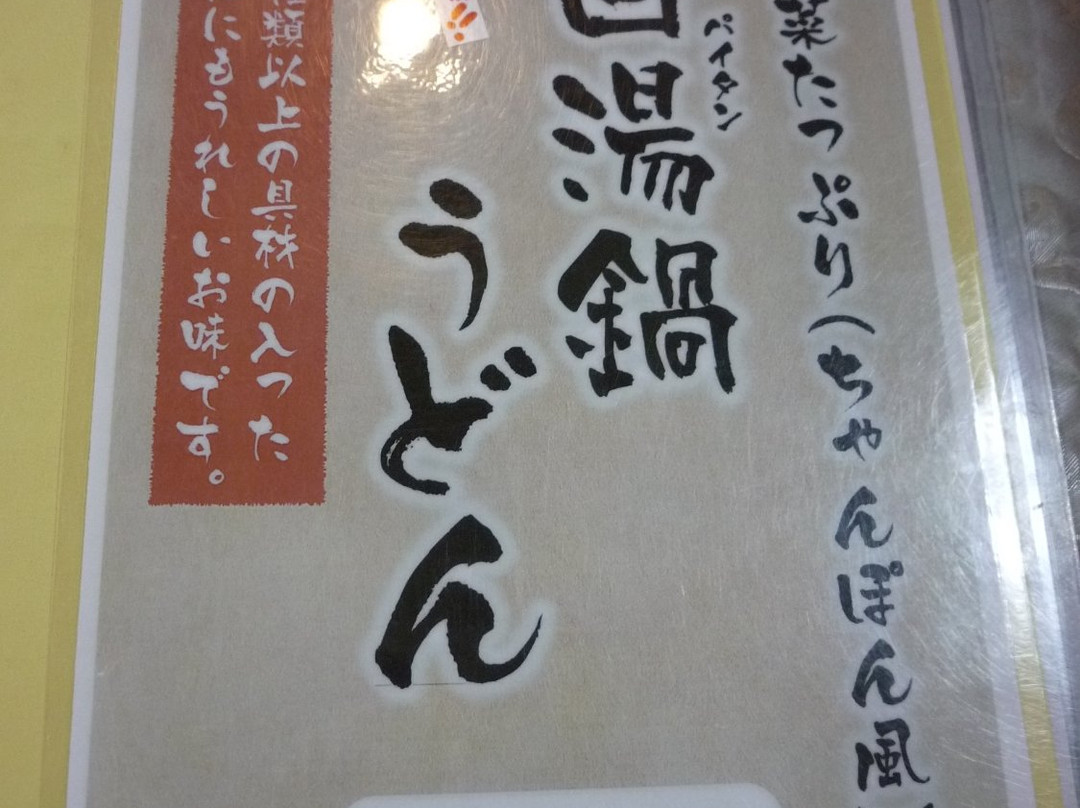 菜たっぷり(ちゃんぽん風
パイタン
白湯鍋
うどん
!!
種類以上の具材の入った
にもうれしいお味です。